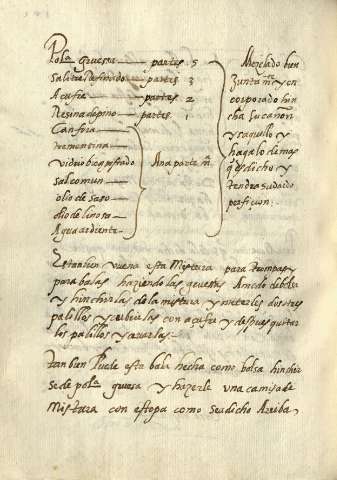 Polª gruesa — partes 5
Salitre Refinado — partes 3
Açufre — partes 2
Resina de pino — partes 1
Canfora
trementina
vidrio bien pistado
Sal comun
olio de saso
olio de linoso
Agua ardiente
Ana parte mª
Mezclado bien
Juntamte y en
corporado hin
cha su cañon
y saquillo y
hagalo demas
qes dicho y
tendra su devida
perfiçion.
Es tanbien buena esta Mistura para trompas y
para balas haziendo las questas A modo de bolsa
y hinchirlas de la mistura y meterles dos o tres
palillos y cubrirlas con açufre y despues quitar
los palillos y cevarlas.
tanbien Puede esta bala hecha como bolsa hinchir
se de polª gruesa y hazerle una camisa de
Mistura con estopa como se a dicho Arriba.